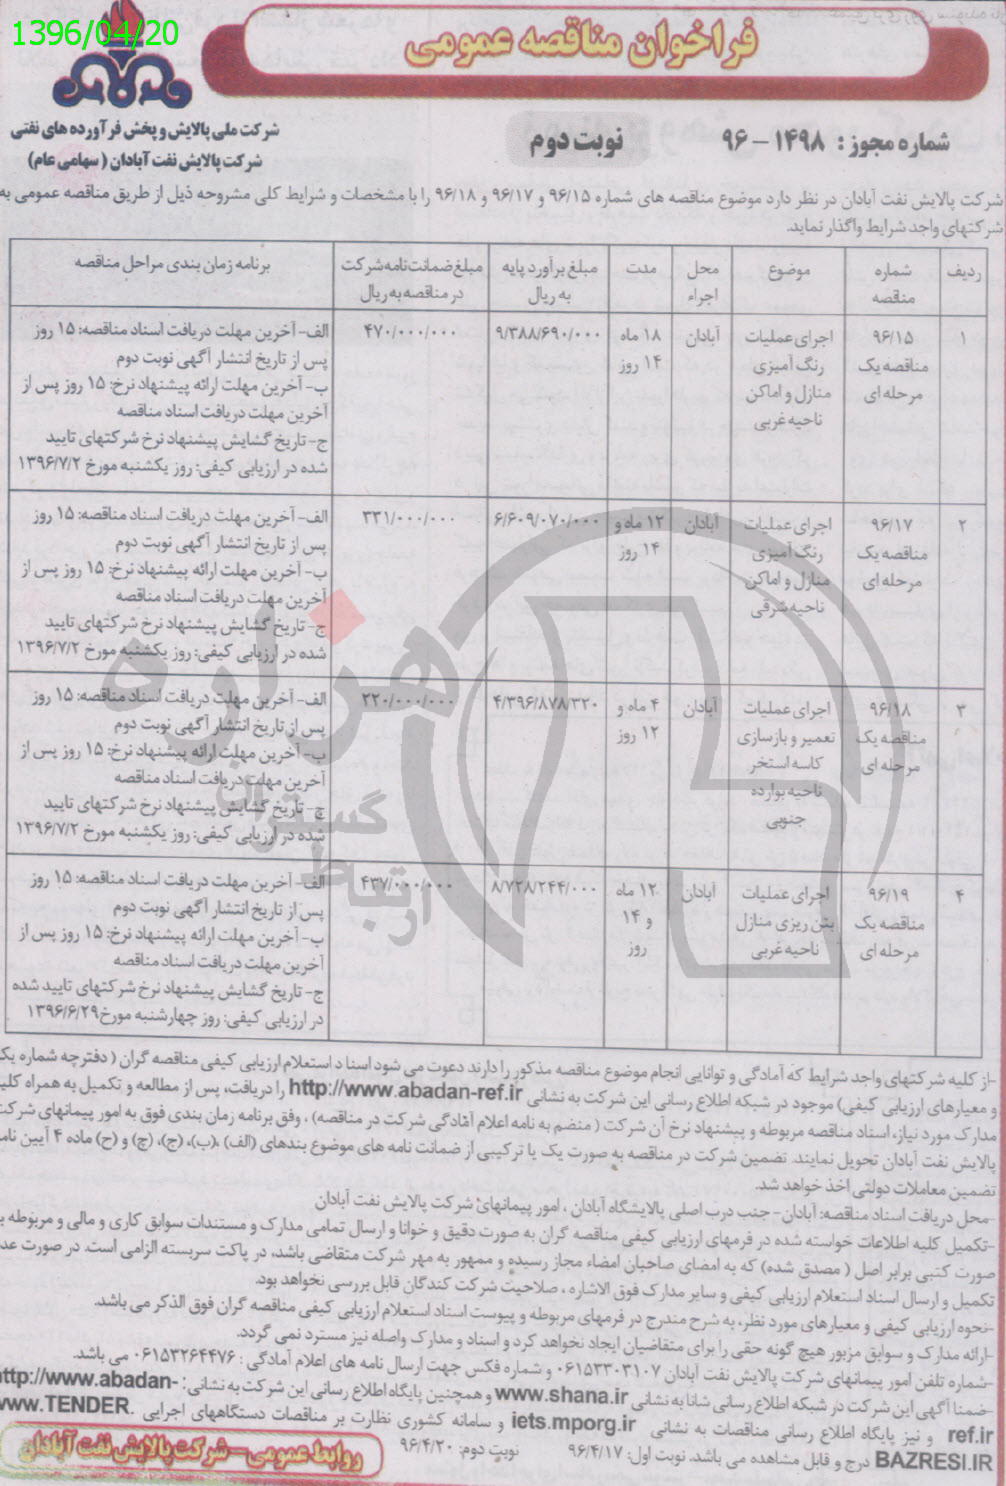 1396/04/20
فراخوان مناقصه عمومی
شرکت ملی پالایش و پخش فرآورده های نفتی
شرکت پالایش نفت آبادان (سهامی عام)
شماره مجوز : ۱۴۹۸ – ۹۶
نوبت دوم
شرکت پالایش نفت آبادان در نظر دارد موضوع مناقصه های شماره ۹۶/۱۵ و ۹۶/۱۷ و ۹۶/۱۸ را با مشخصات و شرایط کلی مشروحه ذیل از طریق مناقصه عمومی به
شرکتهای واجد شرایط واگذار نماید.
ردیف شماره مناقصه موضوع محل اجراء مدت مبلغ برآورد پایه به ریال مبلغ ضمانت نامه شرکت در مناقصه به ریال برنامه زمان بندی مراحل مناقصه
۱ ۹۶/۱۵ مناقصه یک مرحله ای اجرای عملیات رنگ آمیزی منازل و اماکن ناحیه غربی آبادان ۱۸ ماه ۱۴ روز ۹/۳۸۸/۶۹۰/۰۰۰ ۴۷۰/۰۰۰/۰۰۰
الف- آخرین مهلت دریافت اسناد مناقصه: ۱۵ روز
پس از تاریخ انتشار آگهی نوبت دوم
ب- آخرین مهلت ارائه پیشنهاد نرخ: ۱۵ روز پس از
آخرین مهلت دریافت اسناد مناقصه
ج- تاریخ گشایش پیشنهاد نرخ شرکتهای تایید
شده در ارزیابی کیفی: روز یکشنبه مورخ ۱۳۹۶/۷/۲
۲ ۹۶/۱۷ مناقصه یک مرحله ای اجرای عملیات رنگ آمیزی منازل و اماکن ناحیه شرقی آبادان ۱۲ ماه و ۱۴ روز ۶/۶۰۹/۰۷۰/۰۰۰ ۳۳۱/۰۰۰/۰۰۰
الف- آخرین مهلت دریافت اسناد مناقصه: ۱۵ روز
پس از تاریخ انتشار آگهی نوبت دوم
ب- آخرین مهلت ارائه پیشنهاد نرخ: ۱۵ روز پس از
آخرین مهلت دریافت اسناد مناقصه
ج- تاریخ گشایش پیشنهاد نرخ شرکتهای تایید
شده در ارزیابی کیفی: روز یکشنبه مورخ ۱۳۹۶/۷/۲
۳ ۹۶/۱۸ مناقصه یک مرحله ای اجرای عملیات تعمیر و بازسازی کاسه استخر ناحیه بوارده جنوبی آبادان ۴ ماه و ۱۲ روز ۴/۳۹۶/۸۷۸/۳۲۰ ۲۲۰/۰۰۰/۰۰۰
الف- آخرین مهلت دریافت اسناد مناقصه: ۱۵ روز
پس از تاریخ انتشار آگهی نوبت دوم
ب- آخرین مهلت ارائه پیشنهاد نرخ: ۱۵ روز پس از
آخرین مهلت دریافت اسناد مناقصه
ج- تاریخ گشایش پیشنهاد نرخ شرکتهای تایید
شده در ارزیابی کیفی: روز یکشنبه مورخ ۱۳۹۶/۷/۲
۴ ۹۶/۱۹ مناقصه یک مرحله ای اجرای عملیات بتن ریزی منازل ناحیه غربی آبادان ۱۲ ماه و ۱۴ روز ۸/۷۲۸/۲۴۴/۰۰۰ ۴۳۷/۰۰۰/۰۰۰
الف- آخرین مهلت دریافت اسناد مناقصه: ۱۵ روز
پس از تاریخ انتشار آگهی نوبت دوم
ب- آخرین مهلت ارائه پیشنهاد نرخ: ۱۵ روز پس از
آخرین مهلت دریافت اسناد مناقصه
ج- تاریخ گشایش پیشنهاد نرخ شرکتهای تایید شده
در ارزیابی کیفی: روز چهارشنبه مورخ ۱۳۹۶/۶/۲۹
هزاره
گستران
ارتباط
-از کلیه شرکتهای واجد شرایط که آمادگی و توانایی انجام موضوع مناقصه مذکور را دارند دعوت می شود اسناد استعلام ارزیابی کیفی مناقصه گران (دفترچه شماره یک
و معیارهای ارزیابی کیفی) موجود در شبکه اطلاع رسانی این شرکت به نشانی http://www.abadan-ref.ir را دریافت، پس از مطالعه و تکمیل به همراه
مدارک مورد نیاز، اسناد مناقصه مربوطه و پیشنهاد نرخ آن شرکت (منضم به نامه اعلام آمادگی شرکت در مناقصه) ، وفق برنامه زمان بندی فوق به امور پیمانهای شرکت
پالایش نفت آبادان تحویل نمایند. تضمین شرکت در مناقصه به صورت یک یا ترکیبی از ضمانت نامه های موضوع بندهای (الف) ،(ب)، (ج)، (چ) و (ح) ماده ۴ آیین
تضمین معاملات دولتی اخذ خواهد شد.
-محل دریافت اسناد مناقصه: آبادان- جنب درب اصلی پالایشگاه آبادان ، امور پیمانهای شرکت پالایش نفت آبادان
-تکمیل کلیه اطلاعات خواسته شده در فرمهای ارزیابی کیفی مناقصه گران به صورت دقیق و خوانا و ارسال تمامی مدارک و مستندات سوابق کاری و مالی و مربوطه
صورت کتبی برابر اصل ( مصدق شده) که به امضای صاحبان امضاء مجاز رسیده و ممهور به مهر شرکت متقاضی باشد، در پاکت سربسته الزامی است. در صورت
تکمیل و ارسال اسناد استعلام ارزیابی کیفی و سایر مدارک فوق الاشاره ، صلاحیت شرکت کنندگان قابل بررسی نخواهد بود.
-نحوه ارزیابی کیفی و معیارهای مورد نظر، به شرح مندرج در فرمهای مربوطه و پیوست اسناد استعلام ارزیابی کیفی مناقصه گران فوق الذکر می باشد.
-ارائه مدارک و سوابق مزبور هیچ گونه حقی را برای متقاضیان ایجاد نخواهد کرد و اسناد و مدارک واصله نیز مسترد نمی گردد.
-شماره تلفن امور پیمانهای شرکت پالایش نفت آبادان ۰۶۱۵۳۳۰۳۱۰۷ و شماره فکس جهت ارسال نامه های اعلام آمادگی : ۰۶۱۵۳۲۶۴۴۷۶ می باشد.
-ضمنا آگهی این شرکت در شبکه اطلاع رسانی شانا به نشانی www.shana.ir و همچنین پایگاه اطلاع رسانی این شرکت به نشانی: http://www.abadan-
ref.ir و نیز پایگاه اطلاع رسانی مناقصات به نشانی iets.mporg.ir و سامانه کشوری نظارت بر مناقصات دستگاههای اجرایی www.TENDER.
BAZRESI.IR درج و قابل مشاهده می باشد. نوبت اول: ۹۶/۴/۱۷ نوبت دوم: ۹۶/۴/۲۰
روابط عمومی – شرکت پالایش نفت آبادان